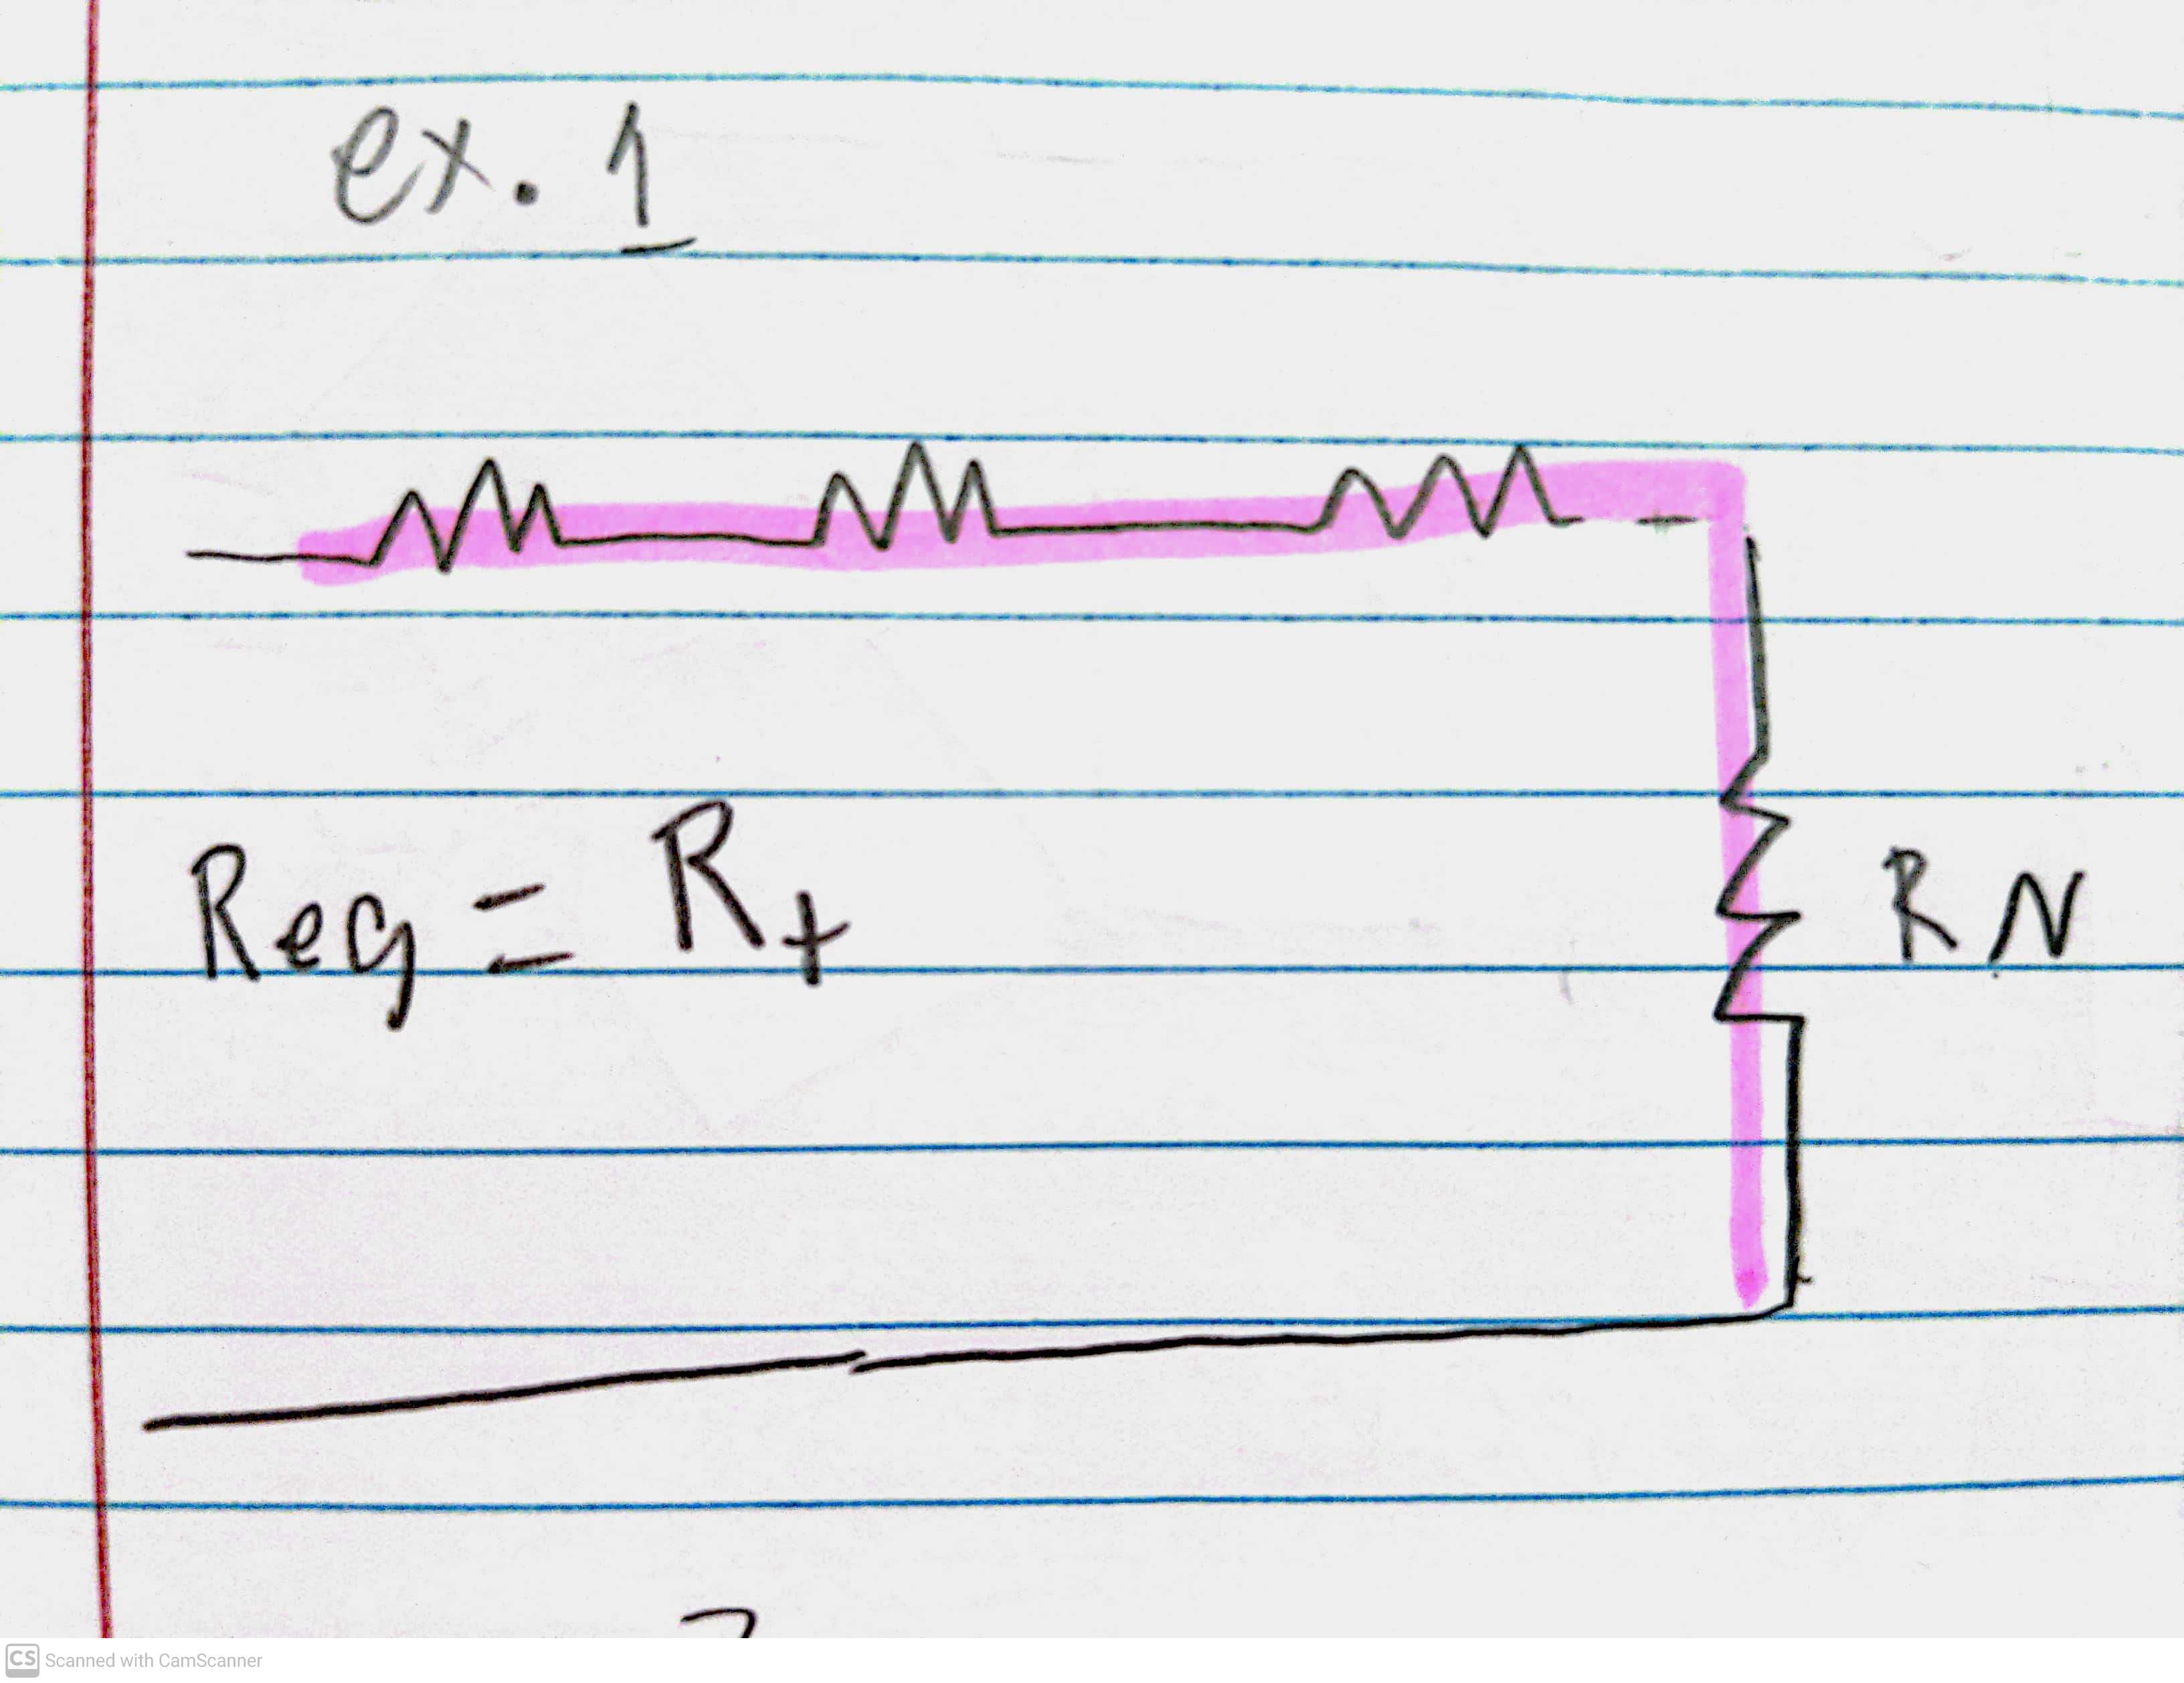 ex. 1
Req = R+
RN
CS Scanned with CamScanner